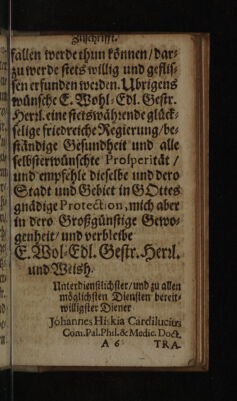 Zuschrifft.
fallen werde thun können / dar-
zu werde stets willig und geflis-
sen erfunden werden. Ubrigens
wünsche E. Wohl-Edl. Gestr.
Herrl. eine stetswährende glück-
selige friedreiche Regierung / be-
ständige Gesundheit und alle
selbsterwünschte Prosperität /
und empfehle dieselbe und dero
Stadt und Gebiet in GOttes
gnädige Protection, mich aber
in dero Großgünstige Gewo-
genheit / und verbleibe
E. Wol-Edl. Gestr. Herrl.
und Weish.
Unterdienstlichster / und zu allen
möglichsten Diensten bereit-
willigster Diener
Johannes Hiskia Cardilucius
Com. Pal. Phil. & Medic. Doct.
A 6 TRA.